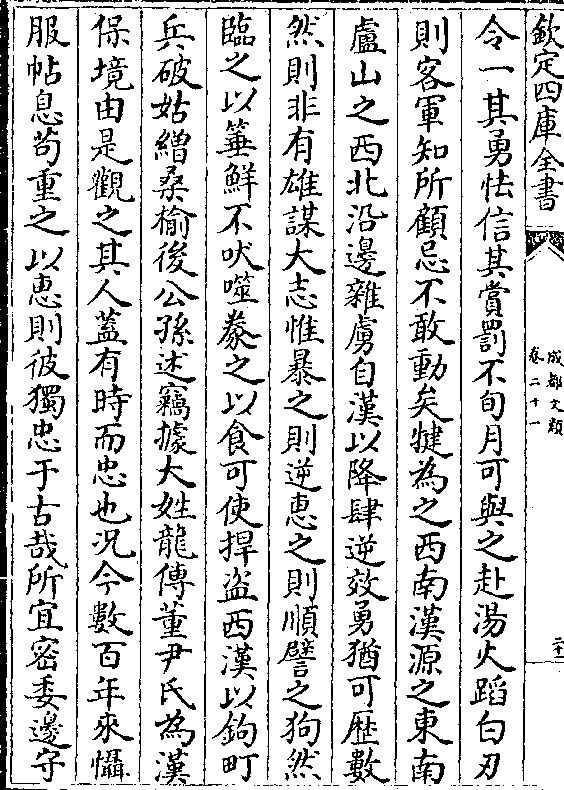 欽定四庫全書
成都文類
卷二十一
二十二
令一其勇怯信其賞罰不旬月可與之赴湯火蹈白刃
則客軍知所顧忌不敢動矣犍為之西南漢源之東南
盧山之西北沿邊雜虜自漢以降肆逆效勇猶可歴數
然則非有雄謀大志惟暴之則逆惠之則順譬之狗然
臨之以箠鮮不吠噬豢之以食可使捍盗西漢以鉤町
兵破姑繒桑榆後公孫述竊據大姓龍傅董尹氏為漢
保境由是觀之其人蓋有時而忠也況今數百年來懾
服帖息茍重之以惠則彼獨忠于古哉所宜密委邊守